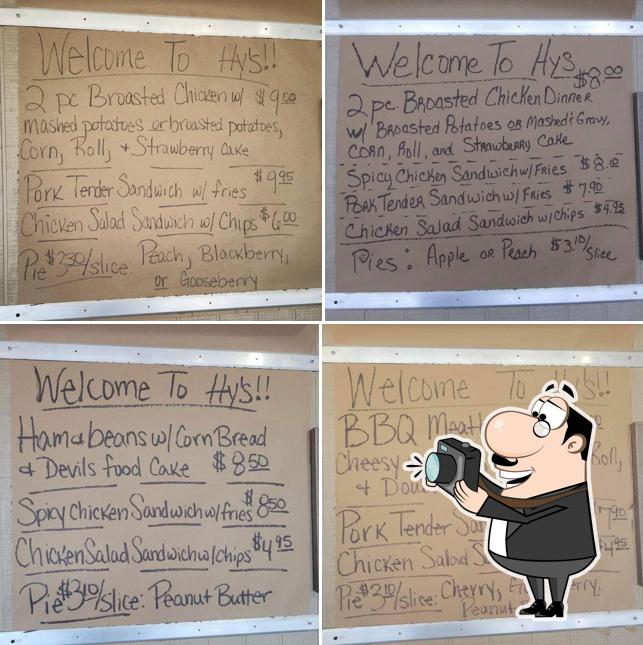 Welcome To Hy's!!
2 pc Broasted Chicken w/ $9.00
mashed potatoes or broasted potatoes,
Corn, Roll, + Strawberry Cake
Pork Tender Sandwich w/ fries $9.95
Chicken Salad Sandwich w/ Chips $6.00
Pie $3.30/slice: Peach, Blackberry,
or Gooseberry
Welcome To Hys
$8.00
2 pc. Broasted Chicken Dinner
w/ Broasted Potatoes or Mashed & Gravy,
Corn, Roll, and Strawberry Cake
Spicy Chicken Sandwich w/Fries $8.10
Pork Tender Sandwich w/Fries $7.90
Chicken Salad Sandwich w/chips $4.95
Pies: Apple or Peach $3.10/slice
Welcome To Hy's!!
Ham & beans w/ Corn Bread
& Devils food Cake $8.50
Spicy Chicken Sandwich w/fries $8.50
Chicken Salad Sandwich w/chips $4.95
Pie $3.10/slice: Peanut Butter
Welcome To Hy's!!
BBQ
Cheesy Roll,
&
Pork Tender 7.90
Chicken Salad $4.95
Pie $3.10/slice: Cherry,
Peanut